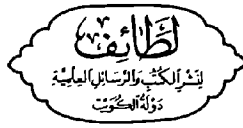 لَطَائِف
لِنَشْرِ الكُتُبِ وَالرَّسَائِلِ العِلْمِيَّةِ
دَوْلَةُ الكُوَيْت